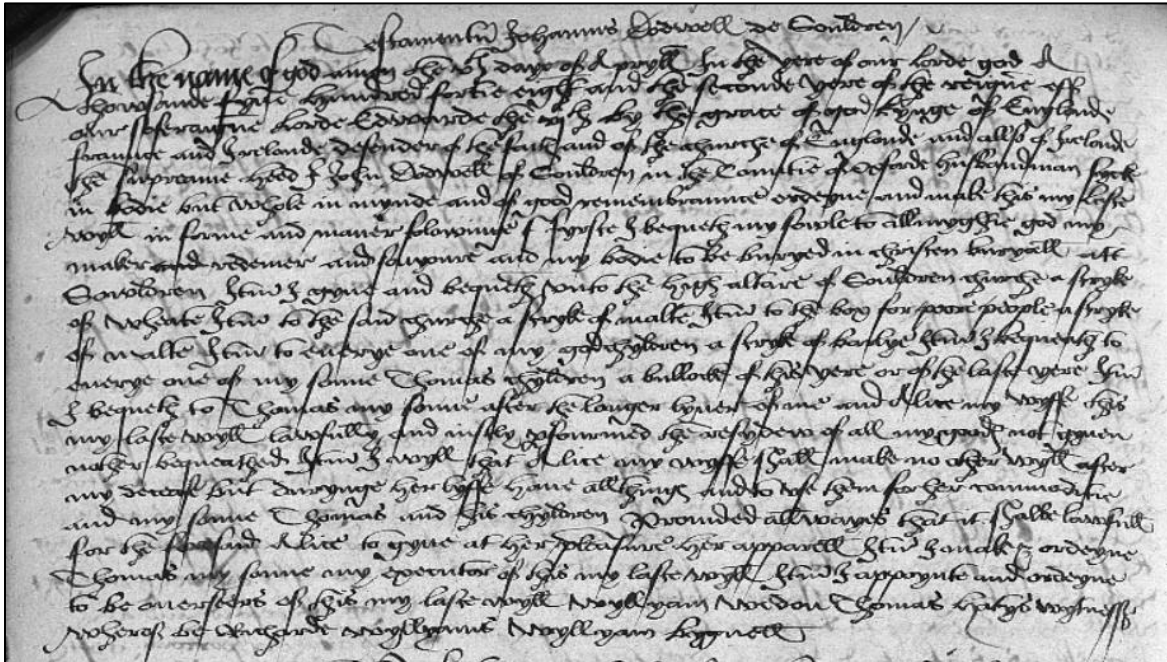 Testamentu Johannis Dodwell de Souldren
In the name of god amen the vth daye of Apryll In the yere of our lorde god A
thowsande fyve hundred fortie eight and the seconde yere of the reigne off
our soferaigne lorde Edwarde the vjth by the grace of god kynge of Englande
fraunce and Irelande defender of the faith and of the churche of Englande and allso of Irelande
the supreame heed I John Dodwell of Souldren in the Comitie of Oxforde husbandman sycke
in bodie but whole in mynde and of good remembraunce ordeyne and make this my laste
wyll in forme and maner folowinge fyrste I bequeth my sowle to allmyghtie god my
maker and redemer and savyoure and my bodie to be buryed in christen buryall att
Sowldren Itm I gyve and bequeth unto the high altare of Souldren churche a stryke
of wheate Itm to the said churche a stryke of malte Itm to the box for poore people a stryke
of malte Itm to everye one of my godchyldren a stryke of barlye Itm I bequeth to
everye one of my sonne Thomas chyldren a bullocke of this yere or of the laste yere Itm
I bequeth to Thomas my sonne after the longer lyver of me and Alice my wyffe this
my laste wyll lawfully and justly pfourmed the resydew of all my goods not gyven
nother bequeathed Itm I wyll that Alice my wyffe shall make no other wyll after
my decease but durynge her lyffe have all things and to use them for her commoditie
and my sonne Thomas and his chyldren Provided allwayes that it shalbe lawfull
for the said Alice to gyve at her pleasure her apparell Itm I make & ordeyne
Thomas my sonne my executor of this my laste wyll Itm I appoynte and ordeyne
to be overseers of this my laste wyll Wyllyam Thomas wytnesse
wherof be Richarde Wyllyams Wyllyam